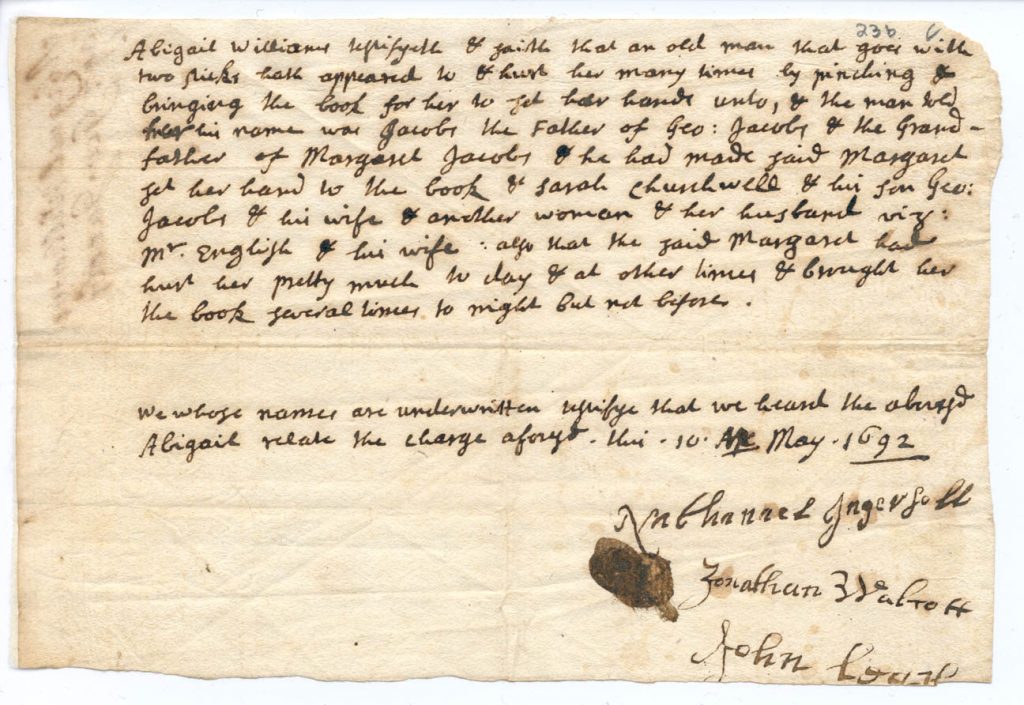 236
Abigail Williams testifyeth & saith that an old man that goes with
two sticks hath appeared to & hurt her many times by pinching &
bringing the book for her to set her hands unto, & the man told
her his name was Jacobs the Father of Geo: Jacobs & the Grand-
father of Margaret Jacobs & he had made said Margaret
set her hand to the book & Sarah Churchwell & his son Geo:
Jacobs & his wife & another woman & her husband viz:
Mr. English & his wife: also that the said Margaret had
hurt her pretty much to day & at other times & brought her
the book several times to night but not before.
We whose names are underwritten testifye that we heard the abovesd
Abigail relate the charge aforesd. this. 10. May. 1692
Nathaniel Ingersoll
Jonathan Walcott
John